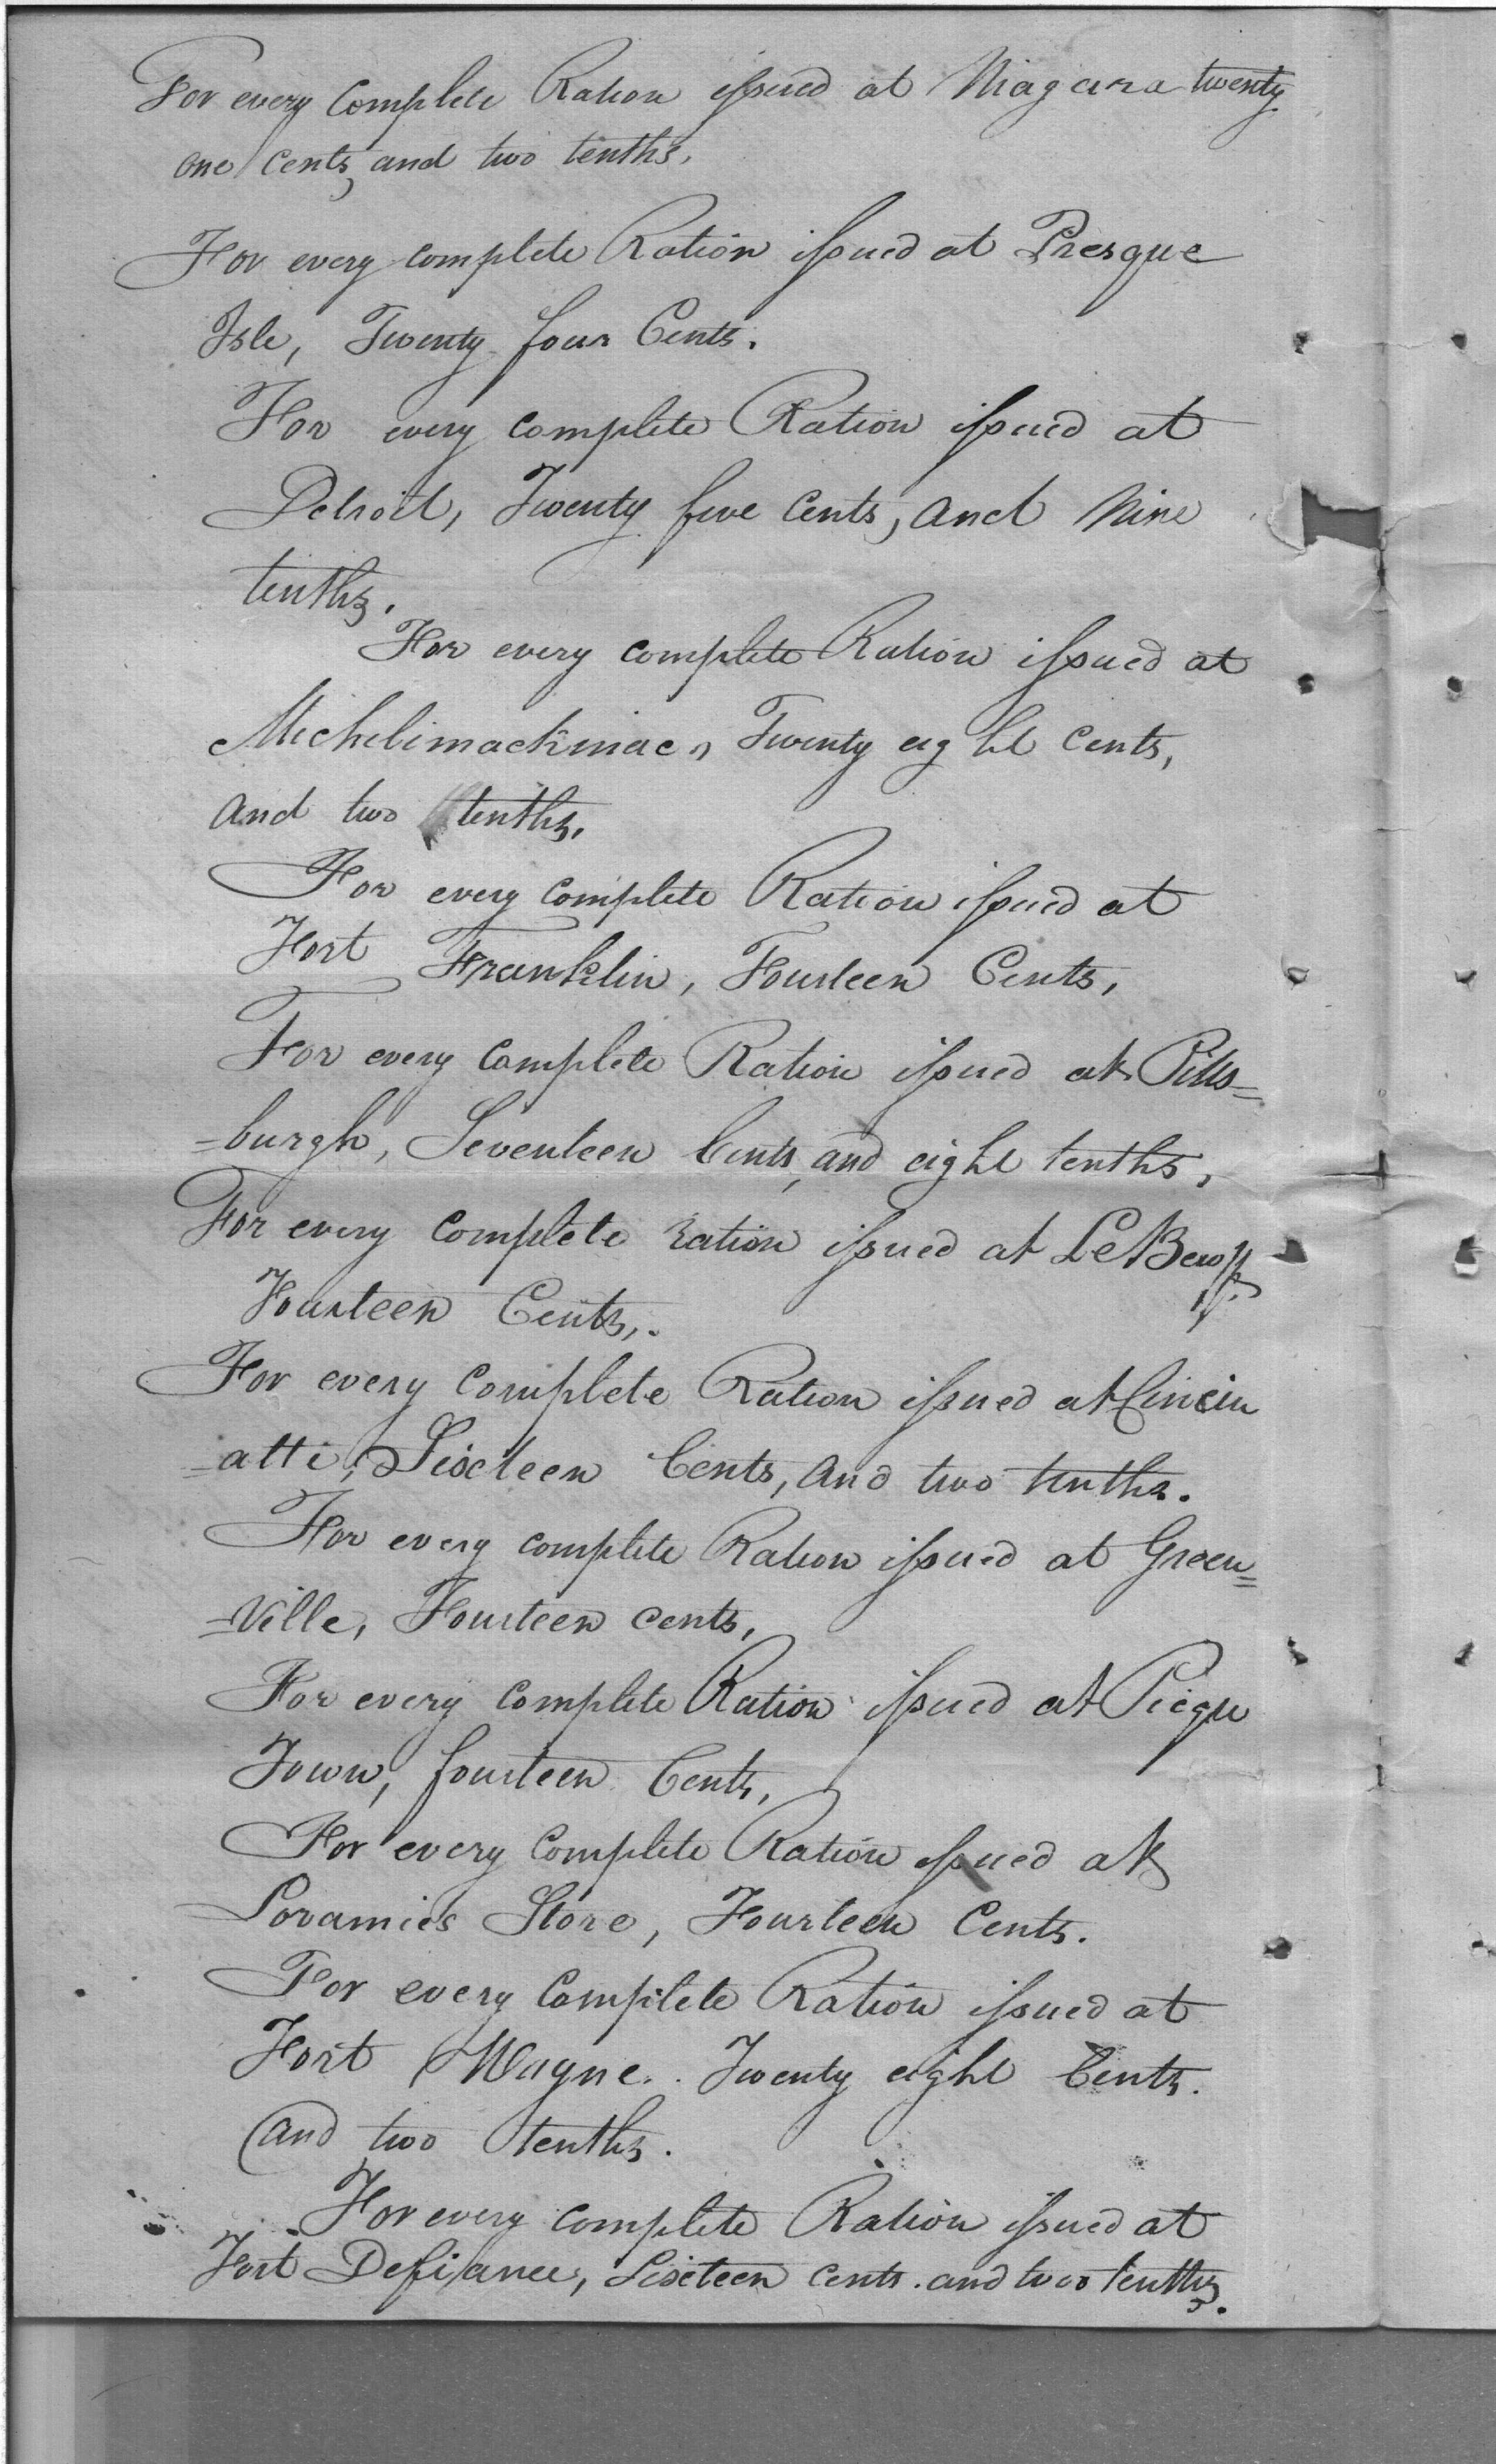 For every Complete Ration issued at Niagara twenty
one cents, and two tenths,
For every complete Ration issued at Presque
Isle, Twenty four Cents.
For every complete Ration issued at
Detroit, Twenty five Cents, and Nine
tenths.
For every complete Ration issued at
Michelimackinac, Twenty eight Cents,
and two tenths.
For every complete Ration issued at
Fort Franklin, Fourteen Cents,
For every complete Ration issued at Pitts=
=burgh, Seventeen Cents, and eight tenths,
For every Complete ration issued at LeBeuff
Fourteen Cents,.
For every Complete Ration issued at Cincin
=atti, Sixteen Cents, and two tenths.
For every complete Ration issued at Green=
=Ville, Fourteen cents,
For every Complete Ration issued at Piequ
Town, fourteen Cents,
For every Complete Ration issued at
Loramies Store, Fourteen Cents.
For every Complete Ration issued at
Fort Wayne. Twenty eight Cents.
and two tenths.
For every complete Ration issued at
Fort Defiance, Sixteen cents. and two tenths.